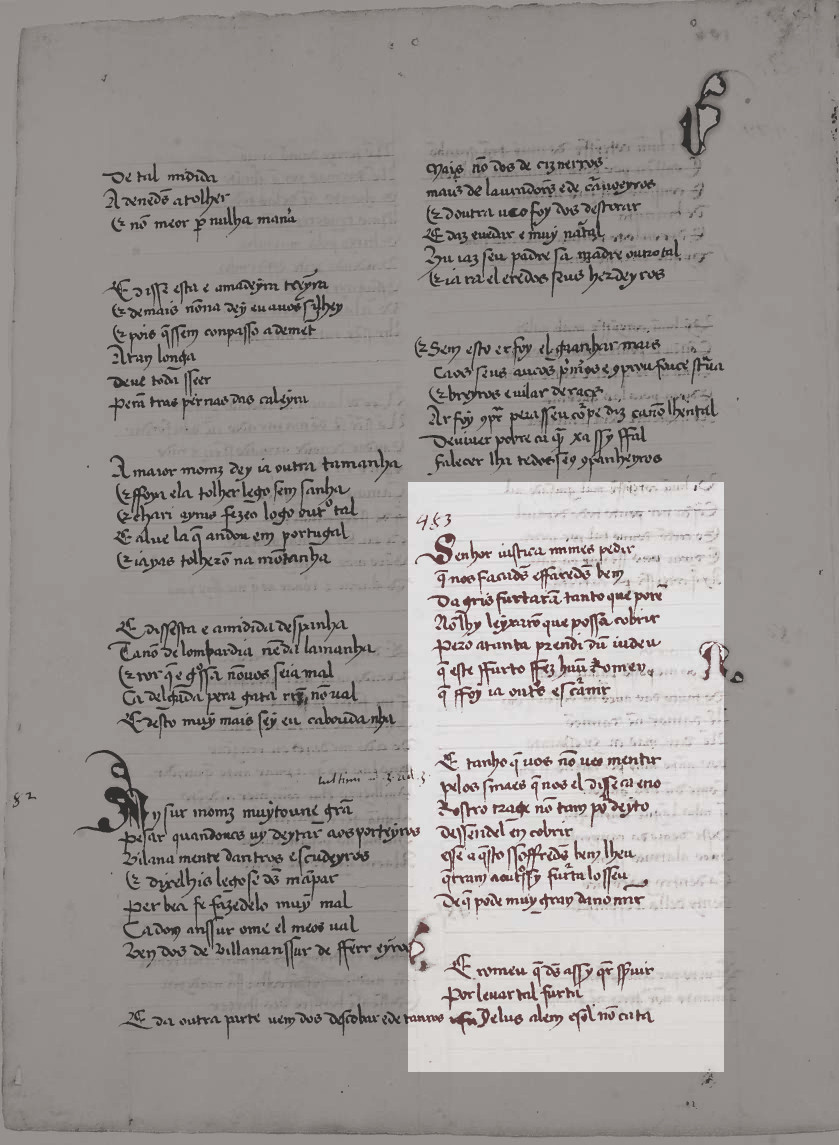 De tal midida
A deneds̃ a tolher
Et nõ meor ꝑ nulha manã
E disse esta e a madeyra teeyra
Et demais nõna dey eu a uos
Et pois q̃ssem conpasso ademet
A ran longa
Deue toda sseer
Pera tras pernas da caleyra
A maior moniz dey ia outra tamanha
Et ffoya ela tolher lego sem sanha
Et fezeo logo tal
E alue la q̃ andou em portugal
Et iaxas tolherõ na mõtanha
E dissesta e a midida despanha
Ca nõ de lombardia nẽ da lamanha
Et por q̃ e g̃ssa nõ uos seia mal
Ca delgada pera gata nõ ual
E desto muy mais sey eu ca bouda nha
82
An sur moniz muyt ouue grã
Pesar quando uos uy deytar aos porteyros
Vilana mente dantros escudeyros
Et dixelhis lego se ds̃ mãpar
Per bõa fe fazedelo muy mal
Ca don anssur ome el meos ual
Ven dos de Villananssur de fferreyros
E da outra parte uem dos descobar e de canpos
Mais nõ dos de cizneyros
mais de lauradors̃ e de cãuoeyros
Et doutra uco foy dos destrar
E daz euedar e muy nat̃al
Hu iaz seu padre sã madre outro tal
Et iara el e redos seus herdeyros
Et Sem esto er foy el guanhar mais
Ca os seus auoos
Et breyros e uilar de raças
Ar foy pera sseu cõpe diz
De uiuer pobre ca q̃ xassy ffal
falecer lha todos seg
483
Senhor iustiça uiimes pedir
q̃ nos façads̃ e ffareds̃ bem
Da gris furtarã tanto que porẽ
Nõ lhy leyxarõ que possa cobrir
Pero atanta prendi dũ iudeu
q̃ este ffurto ffez hũu Romeu
q̃ ffoy ia out̃s e scãrnir
E tanho q̃ uos nõ ueo mentir
pelos sinaes q̃ nos el disse ca eno
Rostro trage nõ tam põ deyto
dessendel en cobrir
esse a q̃sto ssoffreds̃ bem lheu
q̃rram a outssy furta lo sseu
De q̃ pode muy gran dano uiir
E romeu q̃ ds̃ assy q̃r s̃puir
Por leuar tal furta
Jelus alem e sol nõ cata